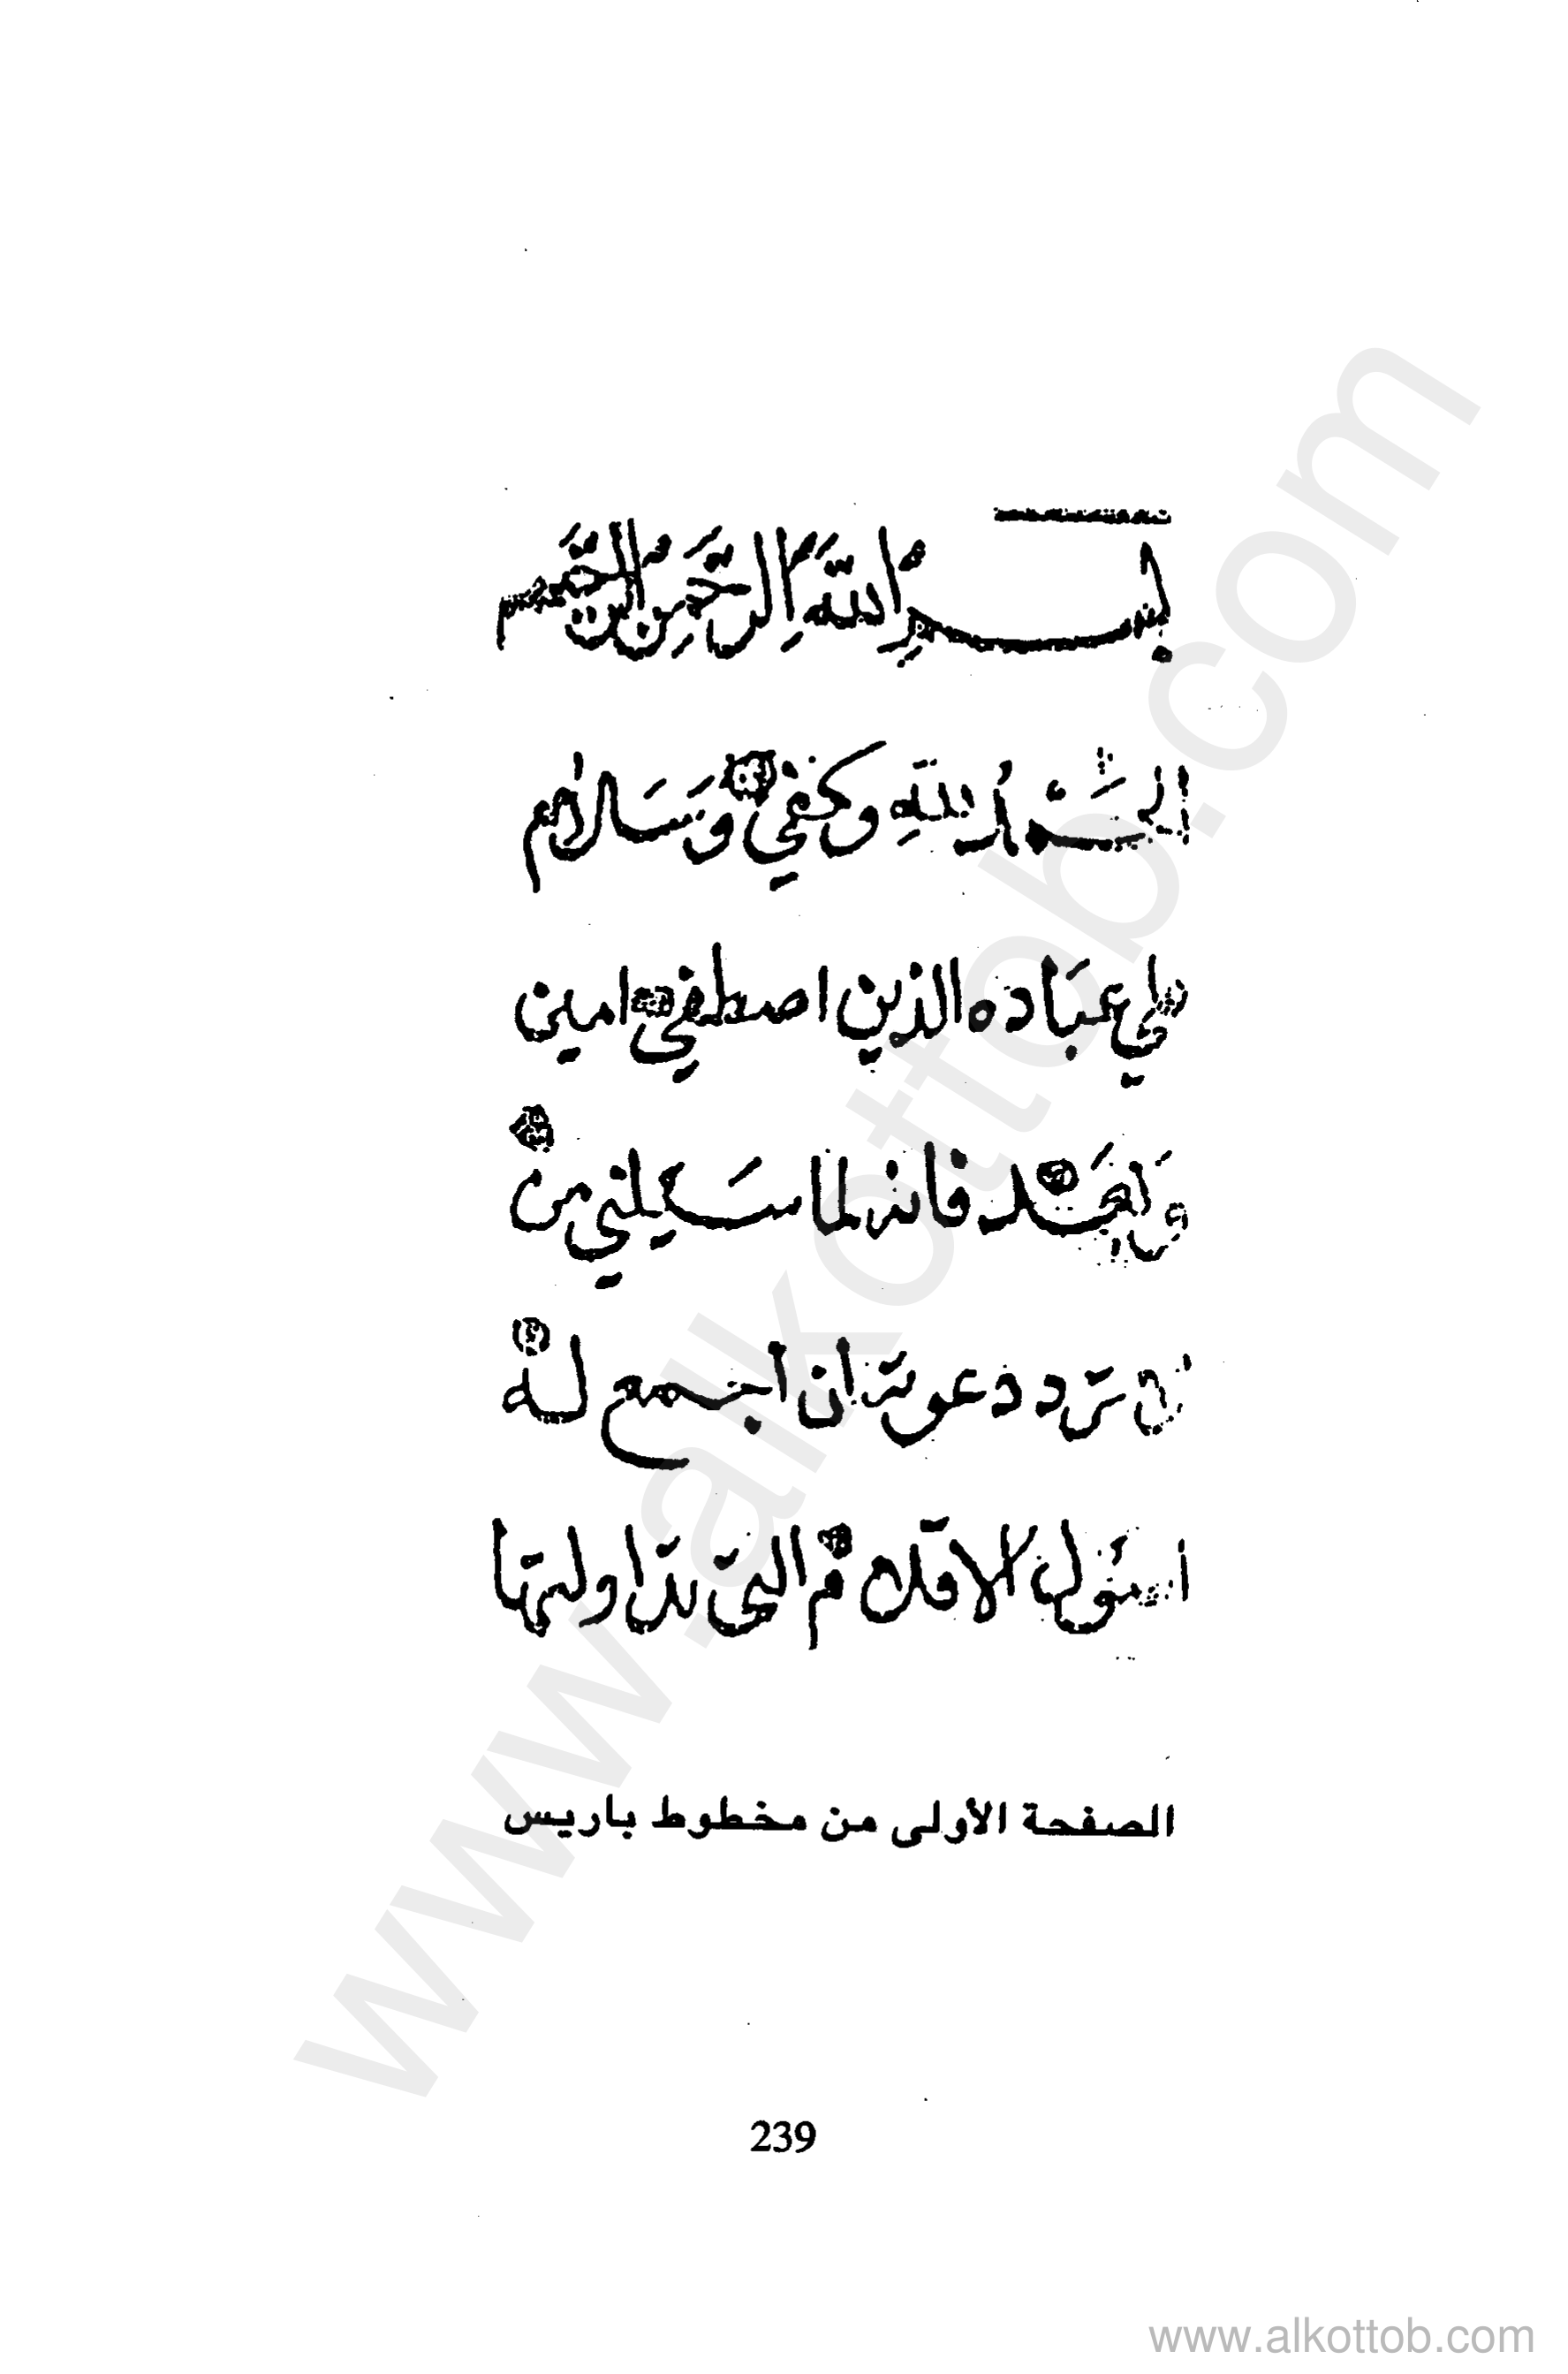 بسم الله الرحمن الرحيم
الحمد لله وكفي وسلام
علي عباده الذين اصطفي امين
وبعد فانه لما سيلني من
لا ترد دعوته ان اجمع له
اصول الاقلام التي تداولتها
الصفحة الأولى من مخطوط باريس
239
www.alkottob.com
www.alkottob.com